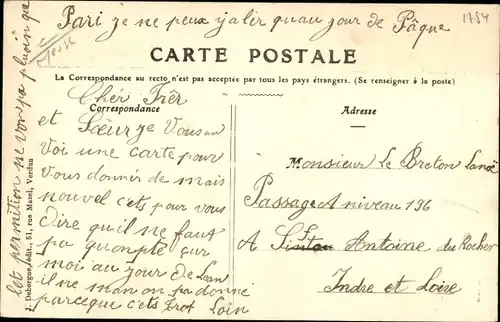 Pari je ne peux y aler quau jour de Pâque
1754
CARTE POSTALE
La Correspondance au recto n'est pas acceptée par tous les pays étrangers. (Se renseigner à la poste)
Correspondance
Adresse
Chér Frêr
et Sœur je Vous an
Voi une carte pour
Vous donnés de mais
nouvel cets pour vous
dire qu'il ne faut
pa quonpté sur
moi au jour de Lean
il ne man on pa donné
parceque c'ets trot loin
Monsieur Le Breton
Passage A niveau 196
A St Antoine du Rocher
Indre et Loire
let permétion ne von pa plusin que
J. Debergue, édit., 61, rue Mazel, Verdun